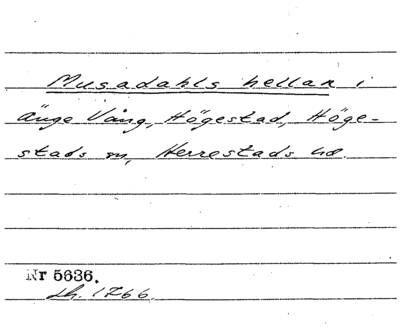 Musadahls hellar i
änge Vång, Högestad, Höge-
stads sn, Herrestads hd.
Nr 5636.
Lh. 1766.